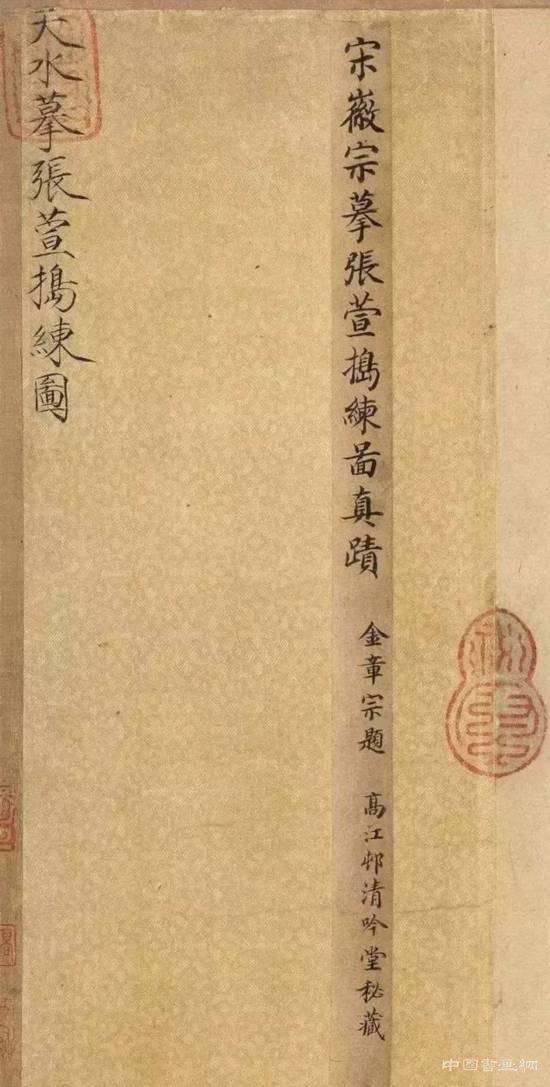 宋徽宗摹張萱搗練啚真蹟
金章宗題
髙江邨清吟堂秘藏
天水摹張萱搗練圖
中国書画網